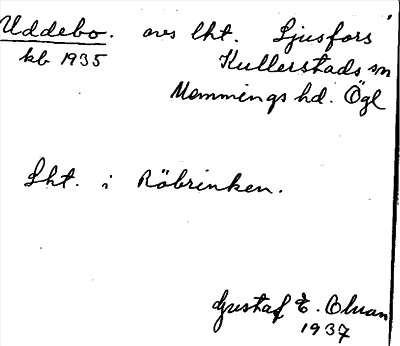 Uddebo. avs lht. Ljusfors
kb 1935 Kullerstads sn
Memmings hd. Ögl
Lht. i Röbrinken.
Gustaf E. Olvan
1937